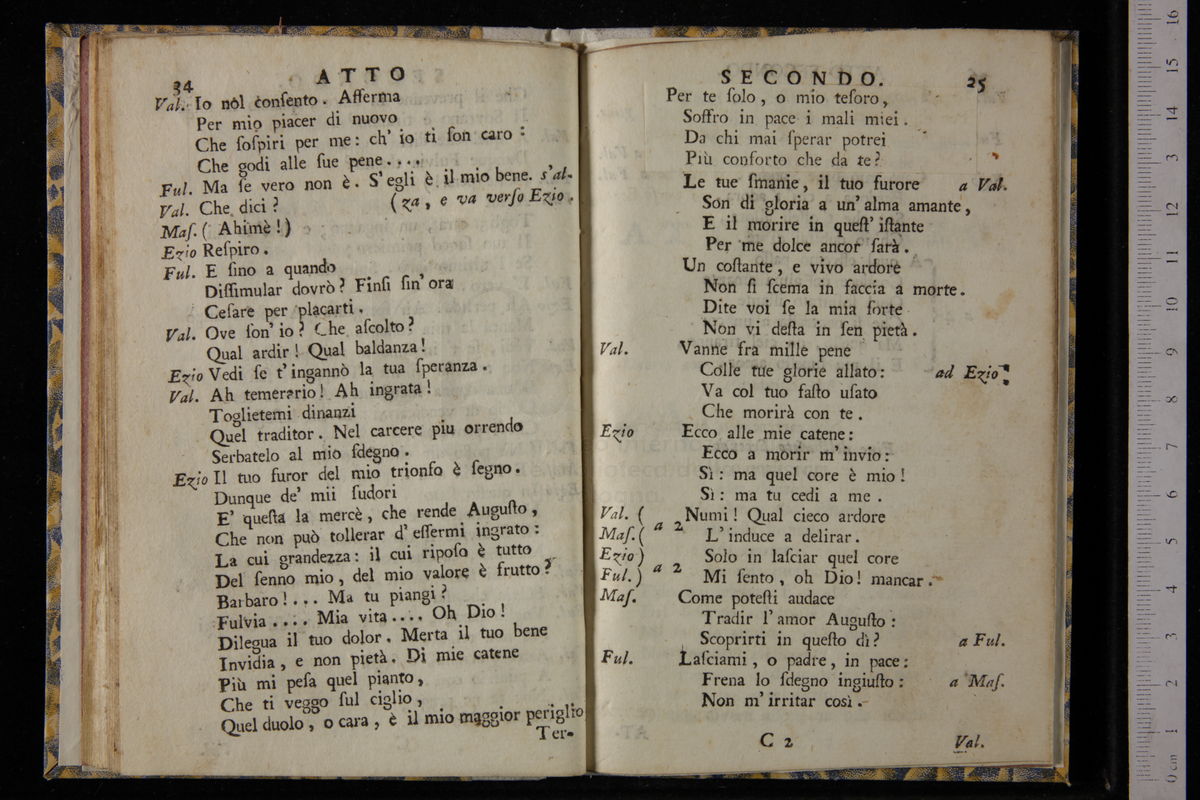 34
ATTO
Val. Io nol conſento. Afferma
Per mio piacer di nuovo
Che ſoſpiri per me: ch' io ti ſon caro:
Che godi alle ſue pene....
Ful. Ma ſe vero non è. S'egli è il mio bene. s'al-
Val. Che dici? (za, e va verſo Ezio.
Maſ. ( Ahimè!)
Ezio Reſpiro.
Ful. E ſino a quando
Diſſimular dovrò? Finſi ſin' ora
Ceſare per placarti.
Val. Ove ſon' io? Che aſcolto?
Qual ardir! Qual baldanza!
Ezio Vedi ſe t'ingannò la tua ſperanza.
Val. Ah temerario! Ah ingrata!
Toglietemi dinanzi
Quel traditor. Nel carcere piu orrendo
Serbatelo al mio ſdegno.
Ezio Il tuo furor del mio trionfo è ſegno.
Dunque de' mii ſudori
E' queſta la mercè, che rende Auguſto,
Che non può tollerar d'eſſermi ingrato:
La cui grandezza: il cui ripoſo è tutto
Del ſenno mio, del mio valore è frutto?
Barbaro!... Ma tu piangi?
Fulvia.... Mia vita.... Oh Dio!
Dilegua il tuo dolor. Merta il tuo bene
Invidia, e non pietà. Di mie catene
Più mi peſa quel pianto,
Che ti veggo ſul ciglio,
Quel duolo, o cara, è il mio maggior periglio
Ter-
SECONDO.
25
Per te ſolo, o mio teſoro,
Soffro in pace i mali miei.
Da chi mai ſperar potrei
Più conforto che da te?
Le tue ſmanie, il tuo furore a Val.
Son di gloria a un' alma amante,
E il morire in queſt' iſtante
Per me dolce ancor ſarà.
Un coſtante, e vivo ardore
Non ſi ſcema in faccia a morte.
Dite voi ſe la mia ſorte
Non vi deſta in ſen pietà.
Val. Vanne fra mille pene
Colle tue glorie allato: ad Ezio:
Va col tuo faſto uſato
Che morirà con te.
Ezio Ecco alle mie catene:
Ecco a morir m'invio:
Sì: ma quel core è mio!
Sì: ma tu cedi a me.
Val. ( a 2 Numi! Qual cieco ardore
Maſ. ( L'induce a delirar.
Ezio ) a 2 Solo in laſciar quel core
Ful. ) Mi ſento, oh Dio! mancar.
Maſ. Come poteſti audace
Tradir l'amor Auguſto:
Scoprirti in queſto dì? a Ful.
Ful. Laſciami, o padre, in pace:
Frena lo ſdegno ingiuſto: a Maſ.
Non m'irritar così.
C 2
Val.
0 cm 1 2 3 4 5 6 7 8 9 10 11 12 13 14 15 16